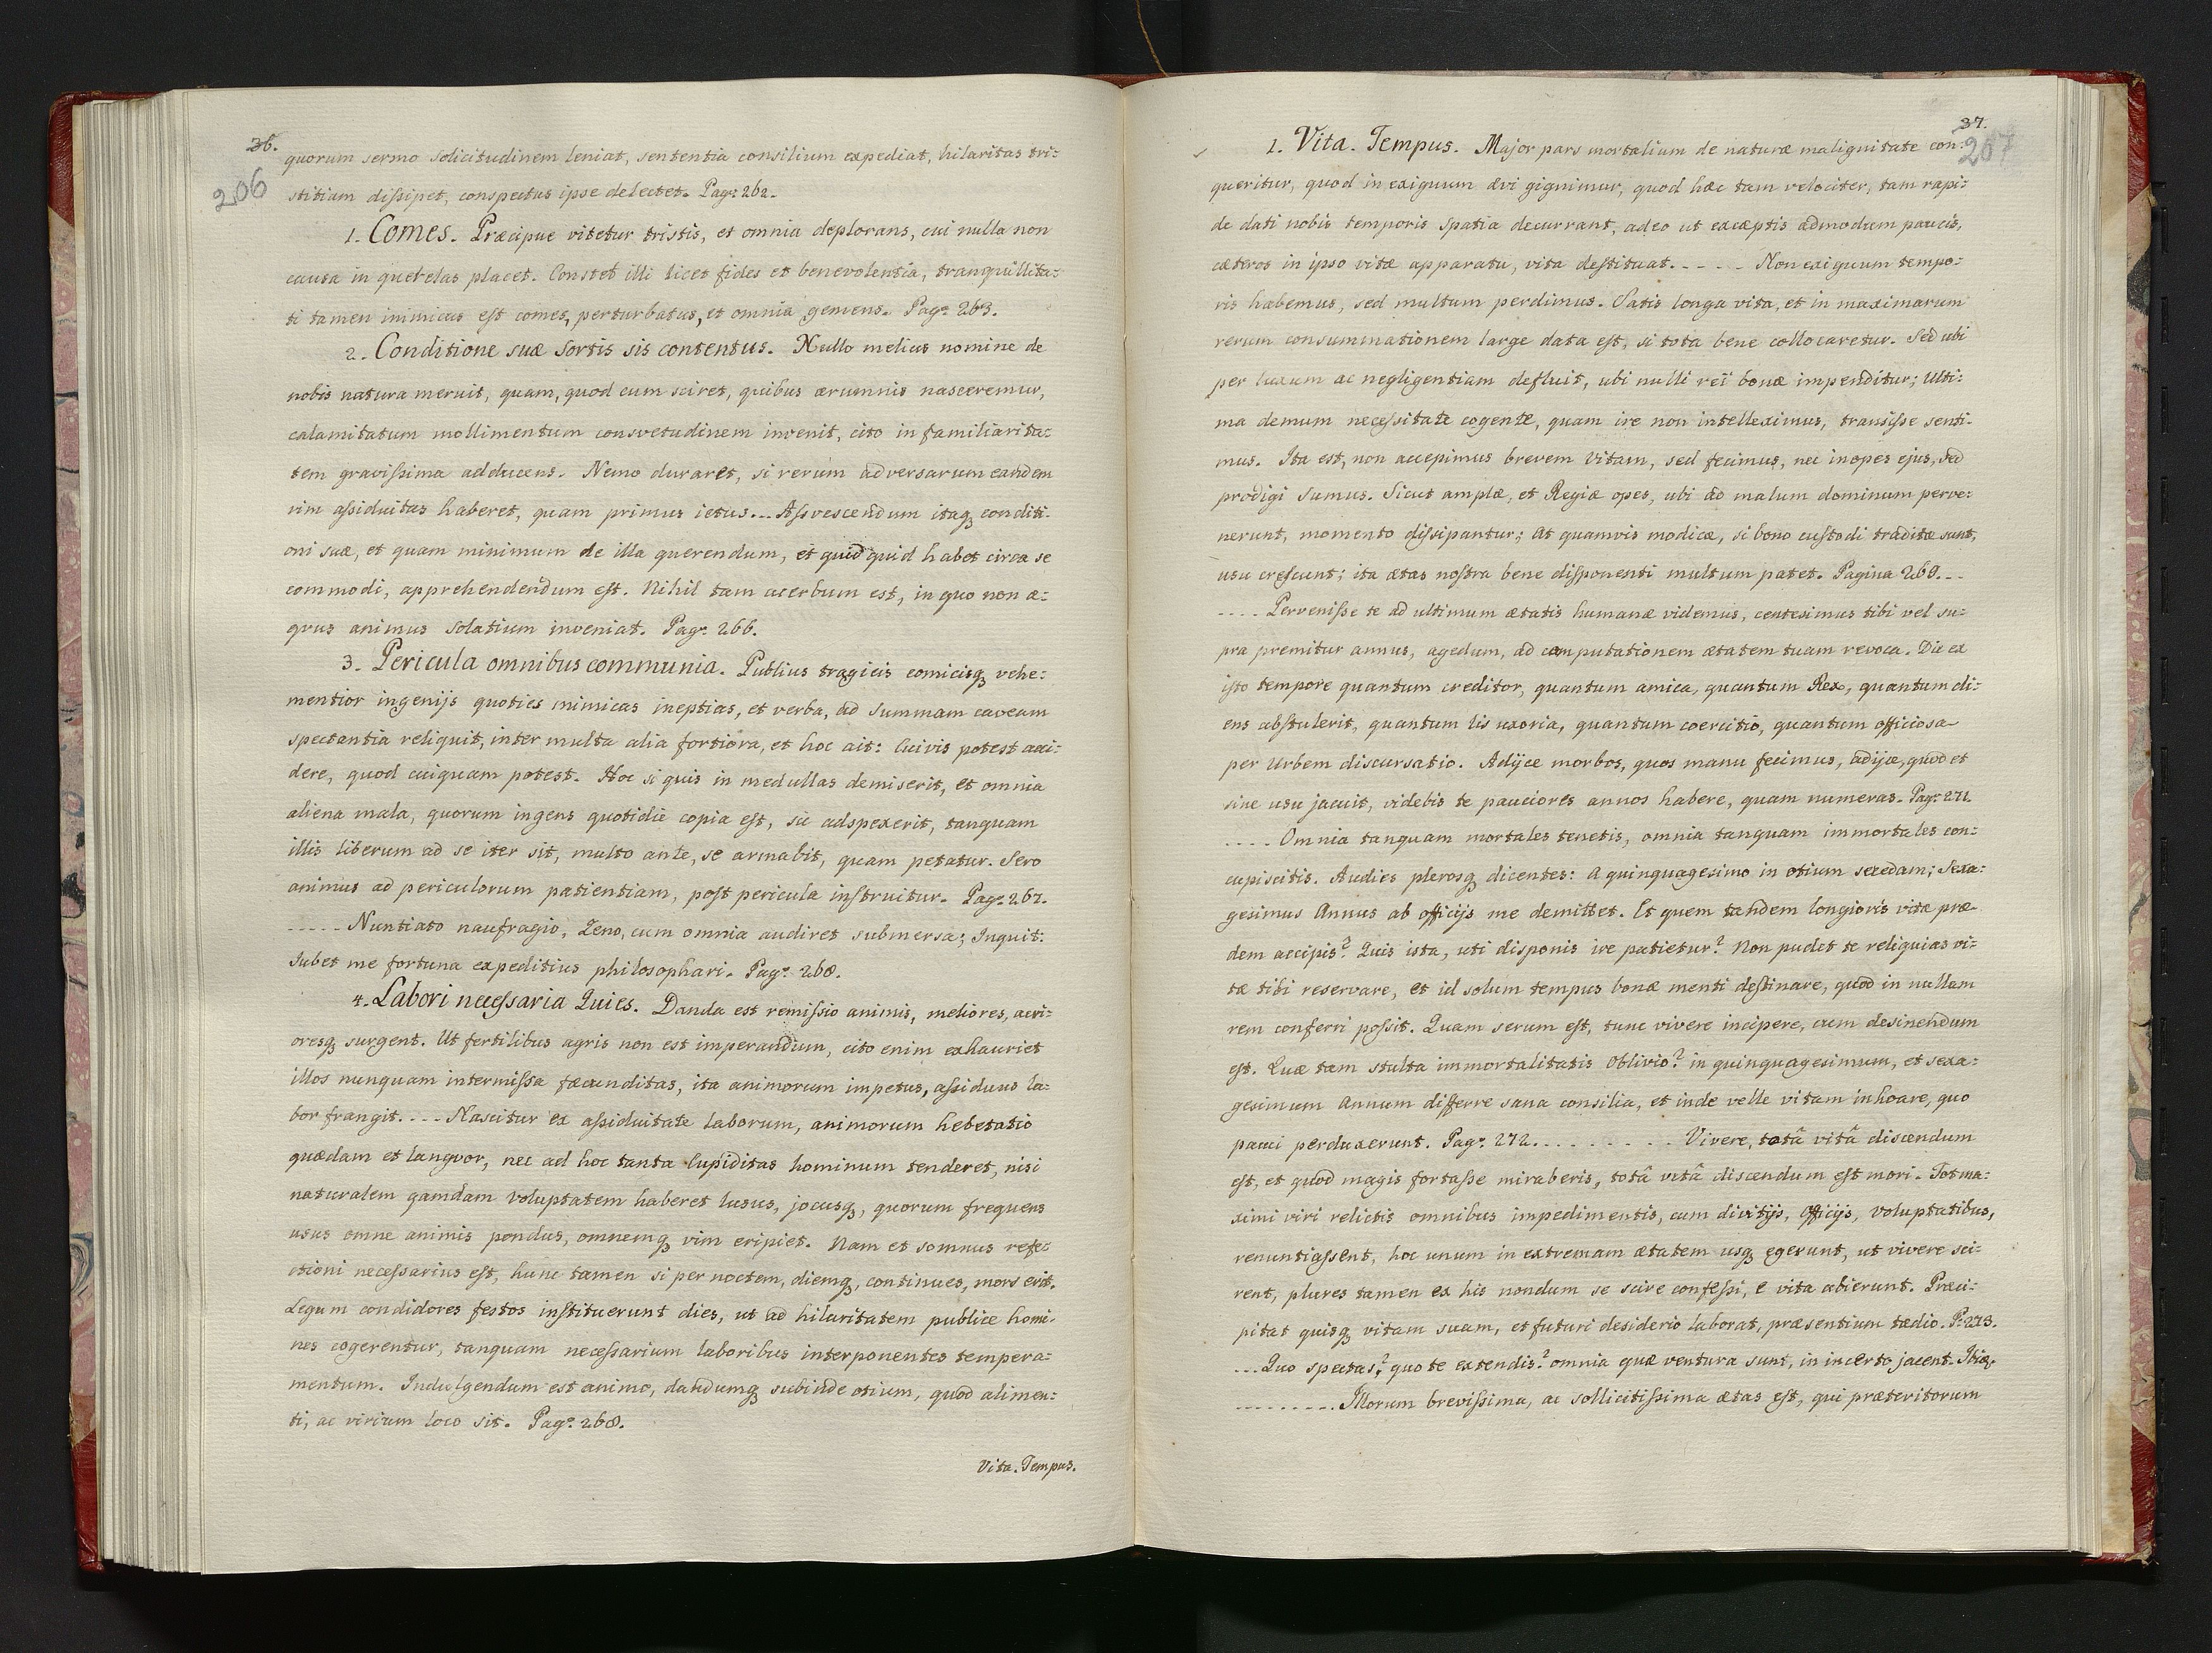 36.
206
quorum sermo solicitudinem leniat, sententia consilium expediat, hilaritas tri=
stitiam diſsipet, conspectus ipse delectet. Pagª 262.
1. Comes. Præcipue vitetur tristis, et omnia deplorans, cui nulla non
causa in querelas placet. Constet illi licet fides et benevolentia, tranquillita=
ti tamen inimicus eſt comes, perturbatus, et omnia gemens. Pagª 263.
2. Conditione suæ Sortis sis contentus. Nullo melius nomine de
nobis natura meruit, quam, quod cum sciret, quibus ærumnis nasceremur,
calamitatum mollimentum consvetudinem invenit, cito in familiarita=
tem graviſsima adducens. Nemo duraret, si rerum adversarum eandem
vim aſsiduitas haberet, quam primus ictus... Aſsvescendum itaq conditi=
oni suæ, et quam minimum de illa querendum, et quidquid habet circa se
commodi, apprehendendum eſt. Nihil tam acerbum est, in quo non æ=
qvus animus Solatium inveniat. Pagª 266.
3. Pericula omnibus communia. Publius tragicis comicisq vehe=
mentior ingenijs quoties mimicas ineptias, et verba, ad summam caveam
spectantia reliquit, inter multa alia fortiora, et hoc ait: Cuivis potest acci=
dere, quod cuiquam potest. Hoc si quis in medullas demiserit, et omnia
aliena mala, quorum ingens quotidie copia eſt, sic adspexerit, tanquam
illis liberum ad se iter sit, multo ante, se armabit, quam petatur. Sero
animus ad periculorum patientiam, poſt pericula inſtruitur. Pagª 267.
----- Nuntiato naufragio, Zeno, cum omnia audiret submersa; Inquit:
Jubet me fortuna expeditius philosophari. Pagª 268.
4. Labori neceſsaria Quies. Danda est remiſsio animis, meliores, acri=
oresq surgent. Ut fertilibus agris non est imperandum, cito enim exhauriet
illos nunquam intermiſsa fæcunditas, ita animorum impetus, aſsiduus la=
bor frangit. ---- Nascitur ex aſsiduitate laborum, animorum hebetatio
quædam et langvor, nec ad hoc tanta Cupiditas hominum tenderet, nisi
naturalem qamdam voluptatem haberet lusus, jocusq, quorum frequens
usus omne animis pondus, omnemq vim eripiet. Nam et somnus refe=
ctioni neceſsarius eſt, hunc tamen si per noctem, diemq, continues, mors erit.
Legum condidores festos inſtituerunt dies, ut ad hilaritatem publice homi=
nes cogerentur, tanquam neceſsarium laboribus interponentes tempera=
mentum. Indulgendum est animo, dandumq subinde otium, quod alimen=
ti, ac virium loco sit. Pagª 268.
Vita. Tempus.
37.
207
1. Vita. Tempus. Major pars mortalium de naturæ malignitate con=
queritur, quod in exiguum ævi gignimur, quod hæc tam velociter, tam rapi=
de dati nobis temporis Spatia decurrant, adeo ut exæptis admodum paucis,
cæteros in ipso vitæ apparatu, vita deſtituat. - - - - - Non exiguum tempo=
ris habemus, sed multum perdimus. Satis longa vita, et in maximarum
rerum consummationem large data eſt, si tota bene collocaretur. Sed ubi
per luxum ac negligentiam defluit, ubi nulli rei bonæ impenditur; Ulti=
ma demum neceſsitate cogente, quam ire non intelleximus, transiſse senti=
mus. Ita est, non accepimus brevem Vitam, sed fecimus, nec inopes ejus, sed
prodigi sumus. Sicut amplæ, et Regiæ opes, ubi ad malum dominum perve=
nerunt, momento diſsipantur; At quamvis modicæ, si bono cuſtodi traditæ sunt,
usu creſcunt; ita ætas noſtra bene diſponenti multum patet. Pagina 269. --
---- Perveniſse te ad ultimum ætatis humanæ videmus, centesimus tibi vel su=
pra premitur annus, agedum, ad computationem ætatem tuam revoca. Dic ex
iſto tempore quantum creditor, quantum amica, quantum Rex, quantum cli=
ens abſtulerit, quantum lis uxoria, quantum coercitio, quantum officiosa
per Urbem discursatio. Adijce morbos, quos manu fecimus, adijce, quod et
sine usu jacuit, videbis te pauciores annos habere, quam numeras. Pagª 271.
---- Omnia tanquam mortales tenetis, omnia tanquam immortales con=
cupiscitis. Audies plerosq dicentes: A quinquagesimo in otium secedam; Sexa=
gesimus Annus ab officijs me demittet. Et quem tandem longioris vitæ præ=
dem accipis? Quis ista, uti disponis ire patietur? Non pudet te reliquias vi=
tæ tibi reservare, et id solum tempus bonæ menti deſtinare, quod in nullam
rem conferri poſsit. Quam serum eſt, tunc vivere incipere, cum desinendum
eſt. Quæ tam stulta immortalitatis Oblivio? in quinquagesimum, et sexa=
gesimum Annum differre sana consilia, et inde velle vitam inhoare, quo
pauci perduxerunt. Pagª 272. - - - - - - - - - Vivere, totâ vitâ discendum
eſt, et quod magis fortaſse miraberis, totâ vitâ discendum eſt mori. Tot ma=
ximi viri relictis omnibus impedimentis, cum divitijs, Officijs, Voluptatibus,
renuntiaſsent, hoc unum in extremam ætatem usq egerunt, ut vivere sci=
rent, plures tamen ex his nondum se scire confeſsi, e vita abierunt. Præci=
pitat quisq vitam suam, et futuri desiderio laborat, præsentium tædio. P. 273.
--- Quo spectas? quo te extendis? omnia quæ ventura sunt, in incerto jacent. Ibid.
-------- Illorum breviſsima, ac sollicitiſsima ætas eſt, qui præteritorum